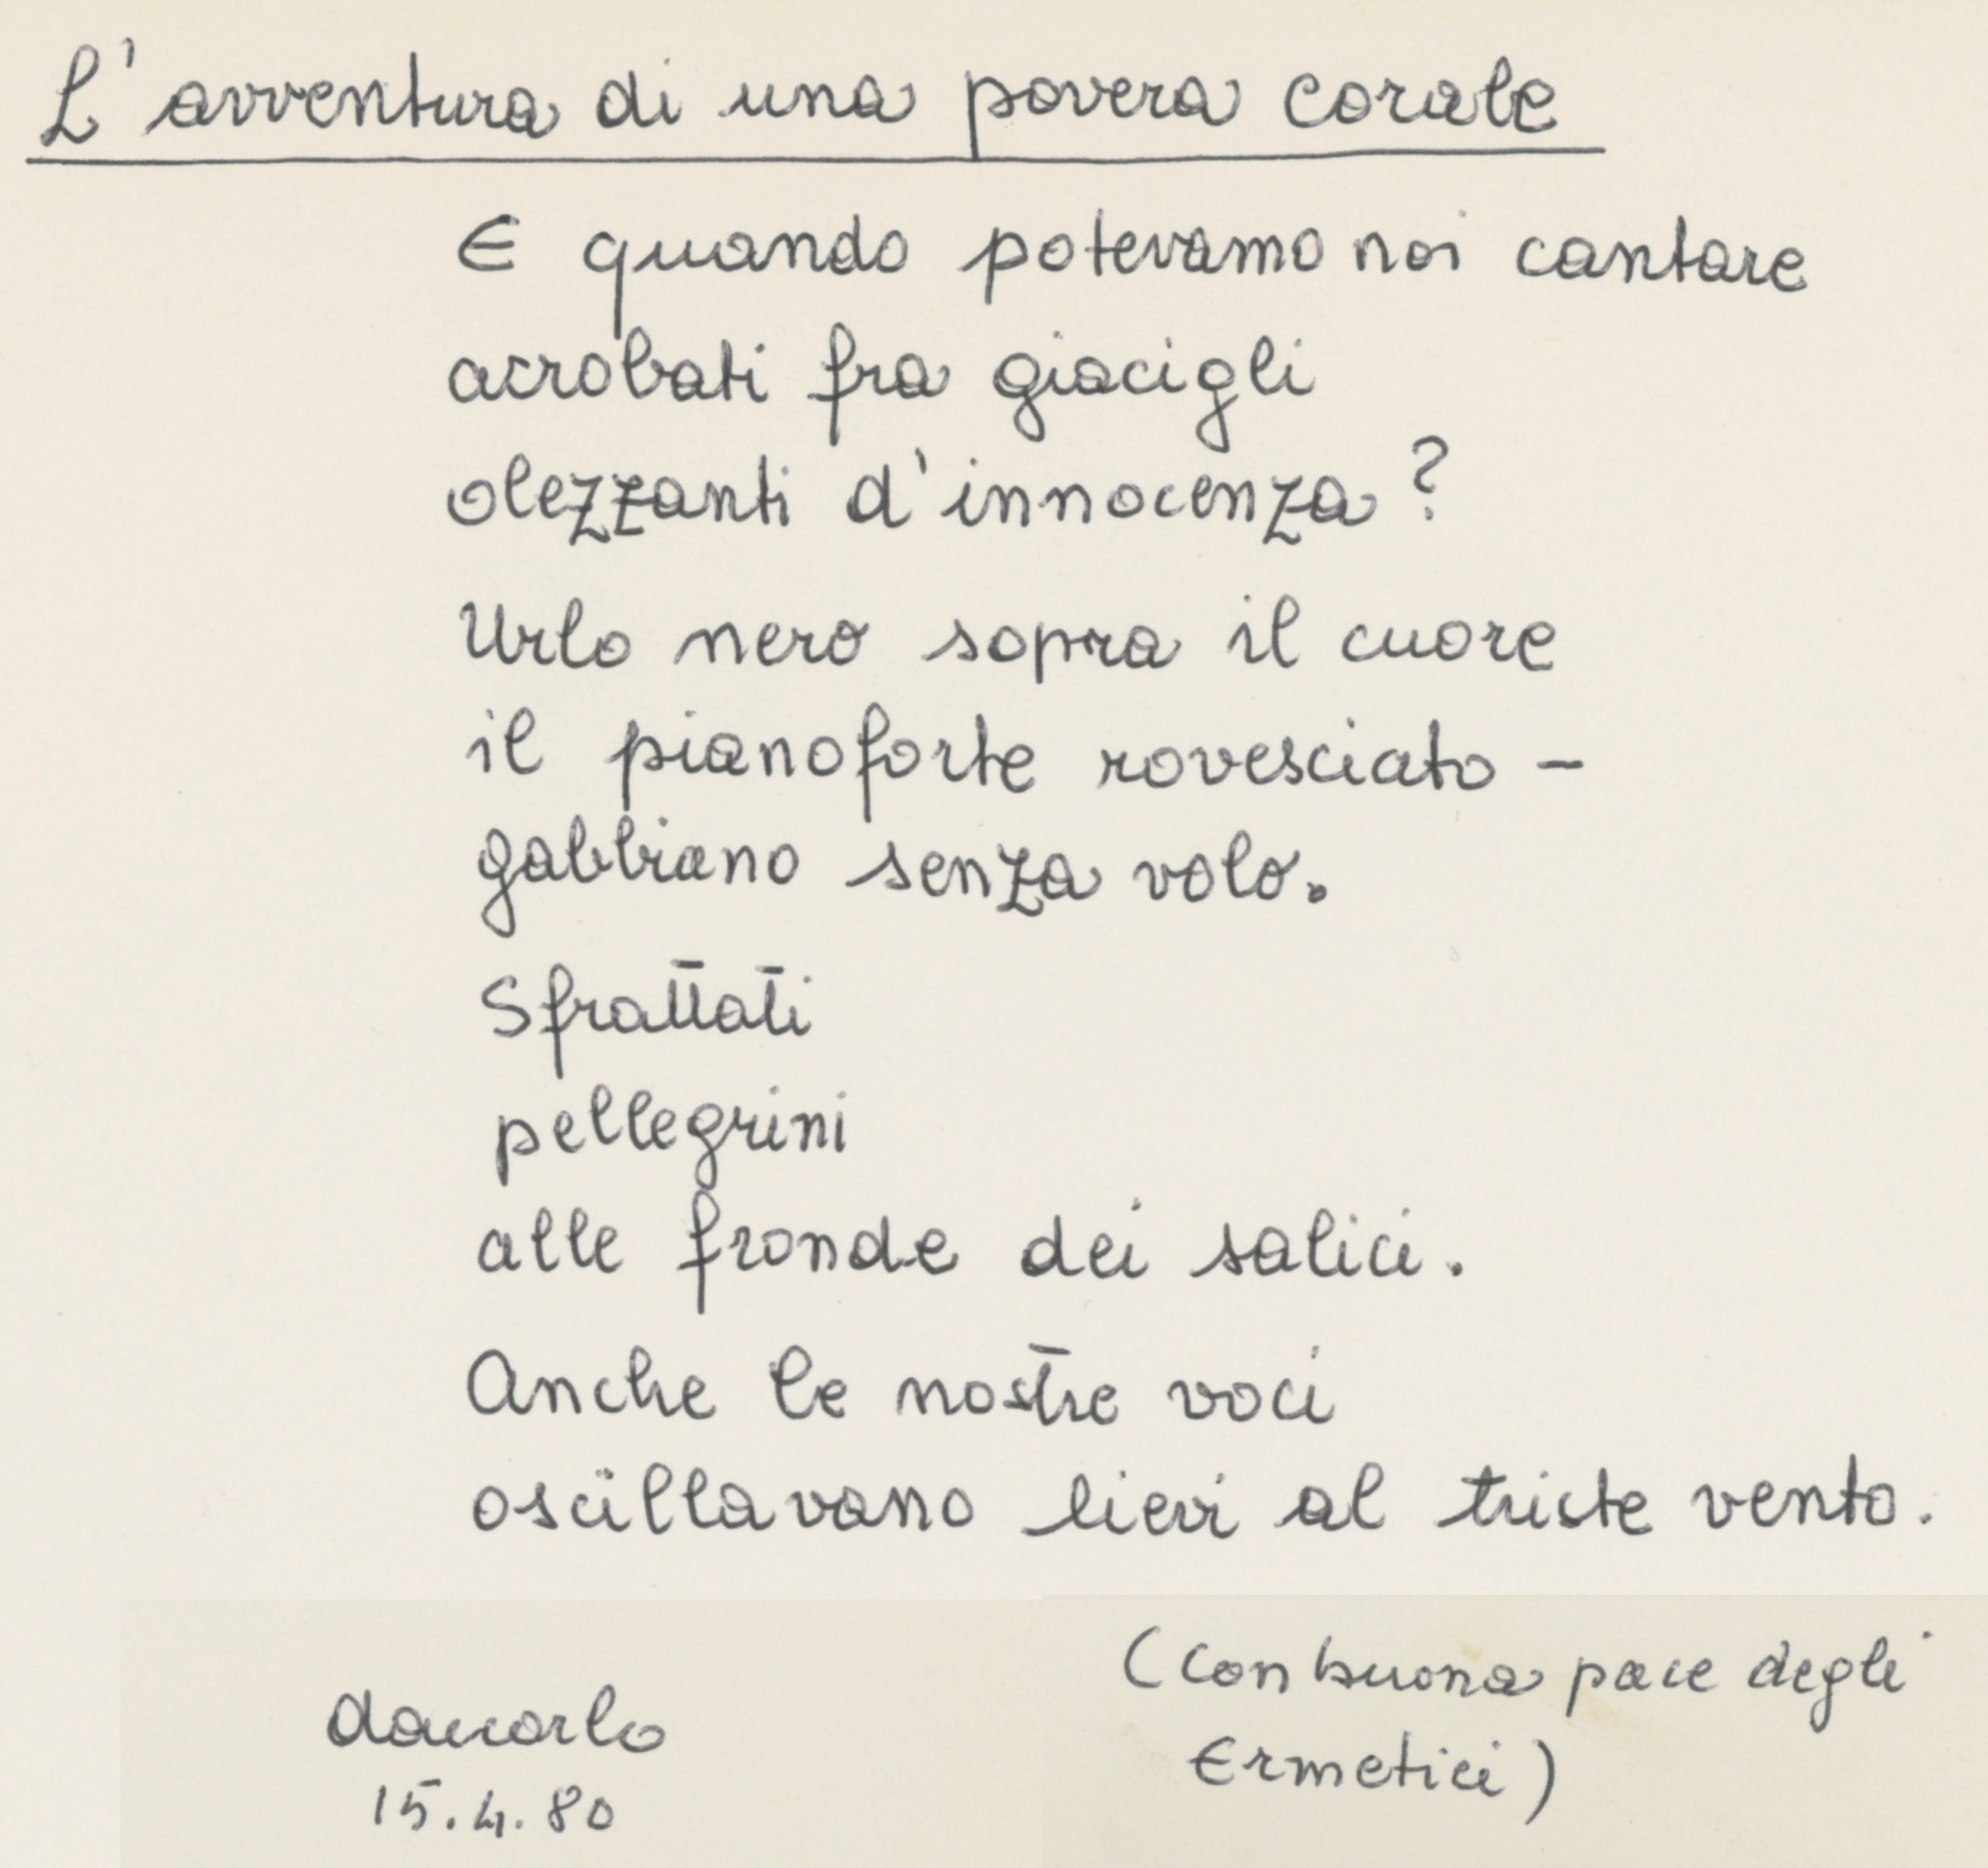 L'avventura di una povera corale
E quando potevamo noi cantare
acrobati fra giacigli
olezzanti d'innocenza?
Urlo nero sopra il cuore
il pianoforte rovesciato -
gabbiano senza volo.
Sfrattati
pellegrini
alle fronde dei salici.
Anche le nostre voci
oscillavano lievi al triste vento.
(con buona pace degli
Ermetici)
15.4.80